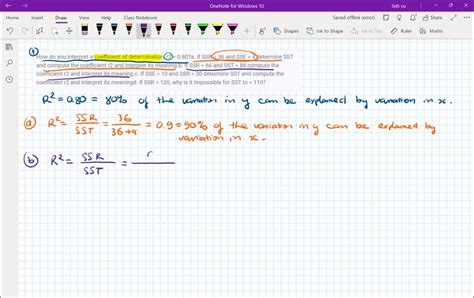 OneNote for Windows 10
linh vu
Home Insert Draw View Help Class Notebook
Saved offline (error) Share
How do you interpret a coefficient of determination, r2, = 0.80?a. If SSR = 36 and SSE = 4 determine SST
and compute the coefficient r2 and interpret its meaning.b. If SSR = 66 and SST = 88 compute the
coefficient r2 and interpret its meaning.c. If SSE = 10 and SSR = 30 determine SST and compute the
coefficient r2 and interpret its meaning.d. If SSR = 120, why is it impossible for SST to = 110?
R² = 0.80 = 80% of the variation in y can be explained by variation in x.
(a) R² = SSR/SST = 36/36+4 = 0.9 = 90% of the variation in y can be explained by
variation in x.
(b) R² = SSR/SST =